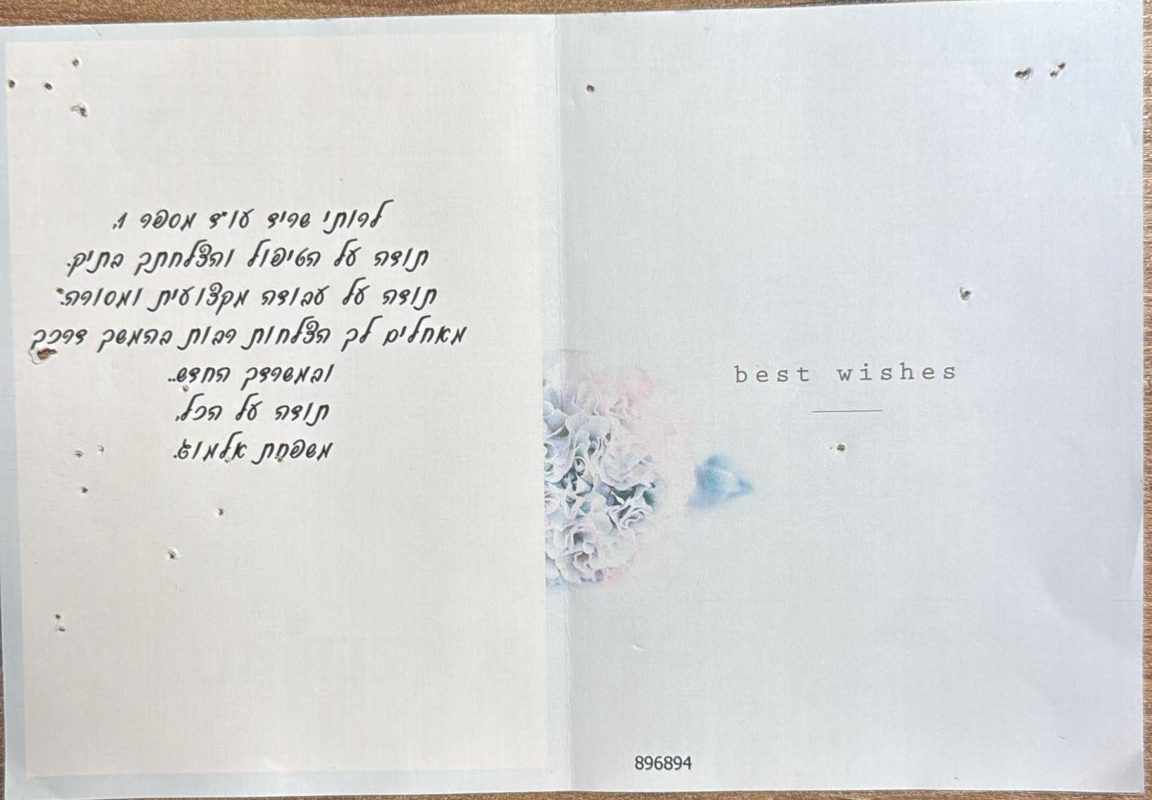 לרותי שריד עו״ד מספר 1.
תודה על הטיפול והצלחתך בתיק.
תודה על עבודה מקצועית ומסורה.
מאחלים לך הצלחות רבות בהמשך דרכך
ובמשרדך החדש..
תודה על הכל.
משפחת אלמוג.
best wishes
896894